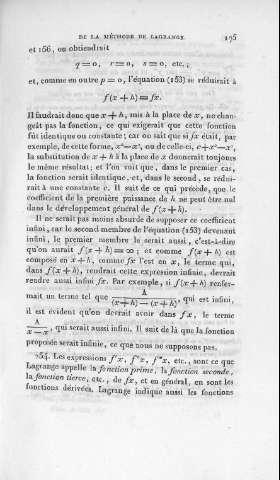 DE LA MÉTHODE DE LAGRANGE. 175
et 156, on obtiendrait
q = 0, r = 0, s = 0, etc.;
et, comme en outre p = 0, l'équation (153) se réduirait à
f(x + h) = fx.
Il faudrait donc que x + h, mis à la place de x, ne chan-
geât pas la fonction, ce qui exigerait que cette fonction
fût identique ou constante; car on sait que si fx était, par
exemple, de cette forme, x° — x°, ou de celle-ci, c + x° — x°,
la substitution de x + h à la place de x donnerait toujours
le même résultat; et l'on voit que, dans le premier cas,
la fonction serait identique, et, dans le second, se rédui-
rait à une constante c. Il suit de ce qui précède, que le
coefficient de la première puissance de h ne peut être nul
dans le développement général de f(x + h).
Il ne serait pas moins absurde de supposer ce coefficient
infini, car le second membre de l'équation (153) devenant
infini, le premier membre le serait aussi, c'est-à-dire
qu'on aurait f(x + h) = ∞; et comme f(x + h) est
composé en x + h, comme fx l'est en x, le terme qui,
dans f(x + h), rendrait cette expression infinie, devrait
rendre aussi infini fx. Par exemple, si f(x + h) renfer-
mait un terme tel que A/((x + h) — (x + h)), qui est infini,
il est évident qu'on devrait avoir dans fx, le terme
A/(x — x), qui serait aussi infini. Il suit de là que la fonction
proposée serait infinie, ce que nous ne supposons pas.
254. Les expressions f'x, f''x, f'''x, etc., sont ce que
Lagrange appelle la fonction prime, la fonction seconde,
la fonction tierce, etc., de fx, et en général, en sont les
fonctions dérivées. Lagrange indique aussi les fonctions